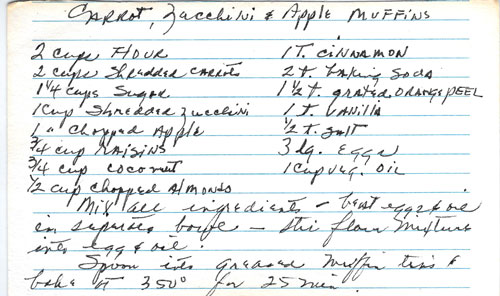 CARROT, Zucchini & Apple MUFFINS
2 cups FLOUR
2 cups Shredded CARROTS
1 1/4 cups Sugar
1 cup Shredded Zucchini
1 " Chopped Apple
3/4 cup RAISINS
3/4 cup COCONUT
1/2 cup chopped Almonds
1 T. CINNAMON
2 t. baking Soda
1 1/2 t. grated ORANGE PEEL
1 t. VANILLA
1/2 t. Salt
3 lg. EGGS
1 cup veg. Oil
Mix all ingredients - beat eggs & oil
in separate bowl - Stir flour mixture
into egg & oil.
Spoon into greased muffin tins &
bake at 350° for 25 min.